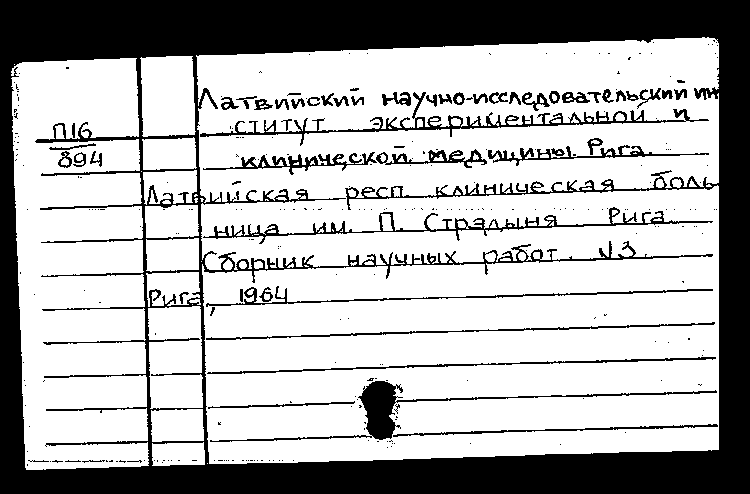 Латвийский научно-исследовательский ин
ститут экспериментальной и
П16
894
клинической медицины. Рига.
Латвийская респ клиническая боль
ница им. П. Страдыня Рига
Сборник научных работ. №3.
Рига, 1964